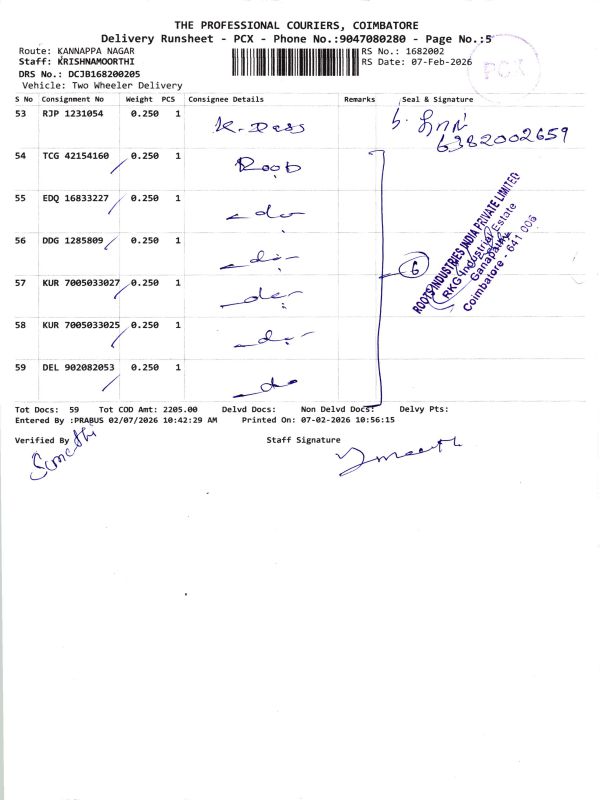 THE PROFESSIONAL COURIERS, COIMBATORE
Delivery Runsheet - PCX - Phone No.:9047080280 - Page No.:5
Route: KANNAPPA NAGAR
RS No.: 1682002
Staff: KRISHNAMOORTHI
RS Date: 07-Feb-2026
PCX
DRS No.: DCJB168200205
Vehicle: Two Wheeler Delivery
S No Consignment No Weight PCS Consignee Details Remarks Seal & Signature
53 RJP 1231054 0.250 1 K. Dass
6382002659
54 TCG 42154160 0.250 1 Roob
55 EDQ 16833227 0.250 1 do
56 DDG 1285809 0.250 1 do
57 KUR 7005033027 0.250 1 do
58 KUR 7005033025 0.250 1 do
59 DEL 902082053 0.250 1 do
6
ROOTS INDUSTRIES INDIA PRIVATE LIMITED
RKG Industrial Estate
Ganapathy
Coimbatore - 641 006
Tot Docs: 59 Tot COD Amt: 2205.00 Delvd Docs: Non Delvd Docs: Delvy Pts:
Entered By :PRABUS 02/07/2026 10:42:29 AM Printed On: 07-02-2026 10:56:15
Verified By
Staff Signature